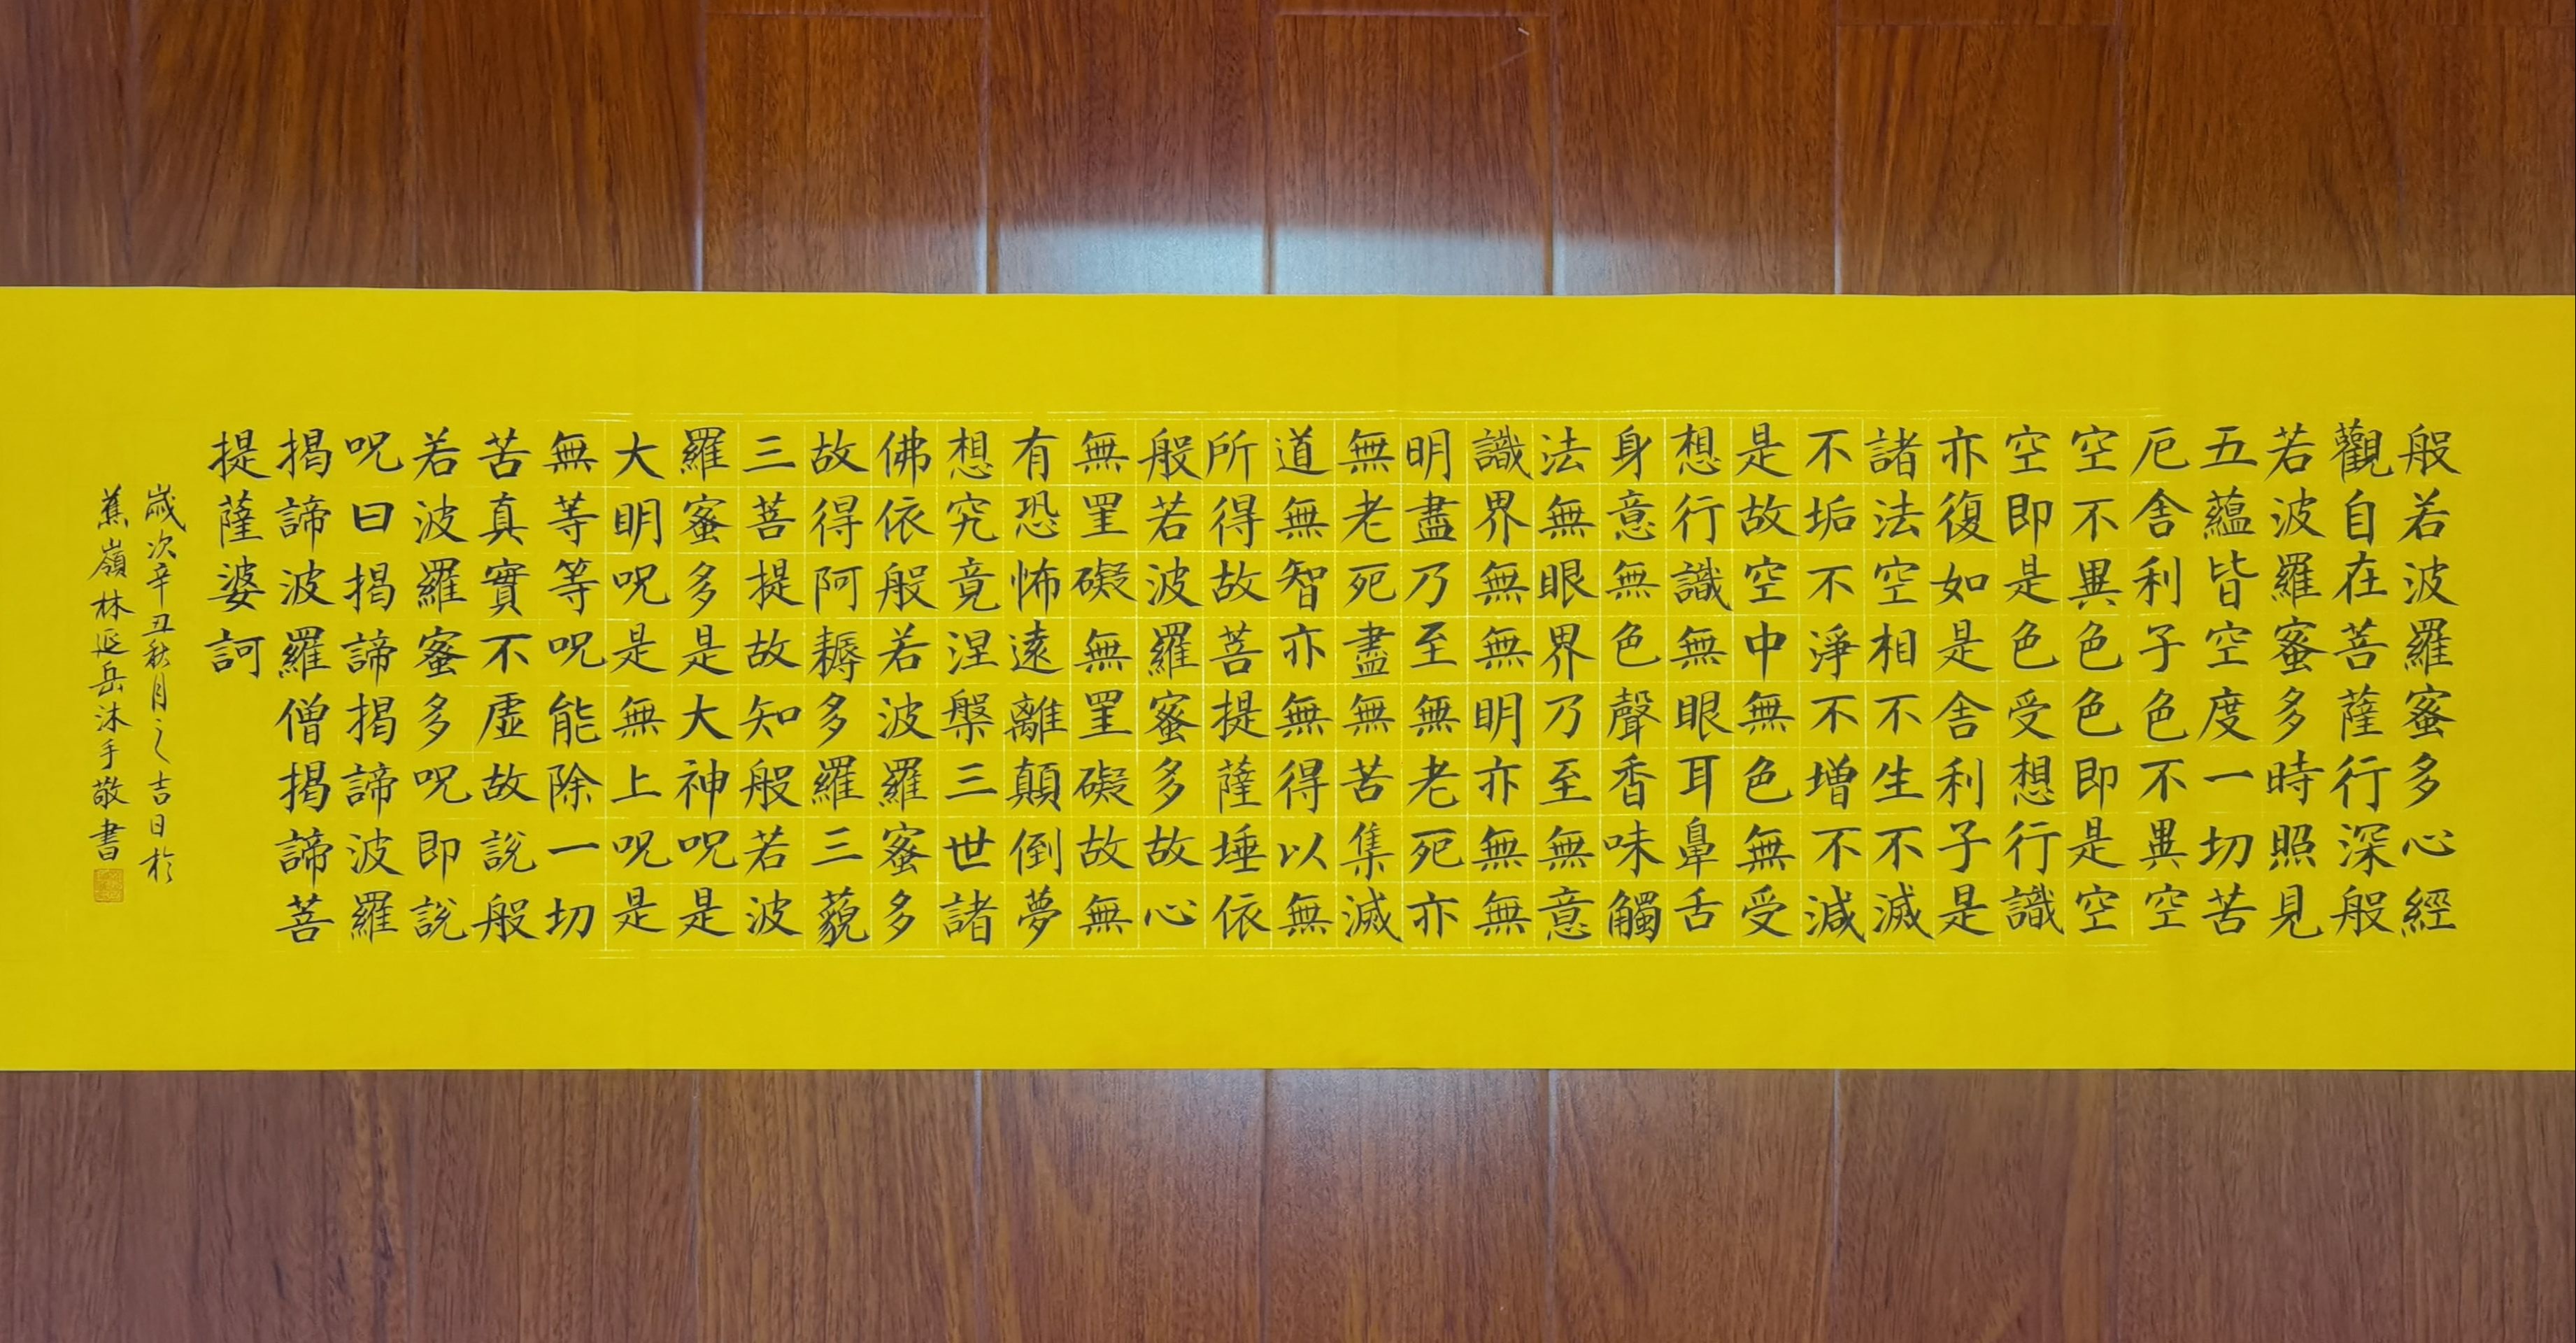 般若波羅蜜多心經
觀自在菩薩行深般
若波羅蜜多時照見
五蘊皆空度一切苦
厄舍利子色不異空
空不異色色即是空
空即是色受想行識
亦復如是舍利子是
諸法空相不生不滅
不垢不淨不增不減
是故空中無色無受
想行識無眼耳鼻舌
身意無色聲香味觸
法無眼界乃至無意
識界無無明亦無無
明盡乃至無老死亦
無老死盡無苦集滅
道無智亦無得以無
所得故菩提薩埵依
般若波羅蜜多故心
無罣礙無罣礙故無
有恐怖遠離顛倒夢
想究竟涅槃三世諸
佛依般若波羅蜜多
故得阿耨多羅三藐
三菩提故知般若波
羅蜜多是大神呪是
大明呪是無上呪是
無等等呪能除一切
苦真實不虛故說般
若波羅蜜多呪即說
呪曰揭諦揭諦波羅
揭諦波羅僧揭諦菩
提薩婆訶
歲次辛丑秋月之吉日於
蕉嶺林延岳沐手敬書